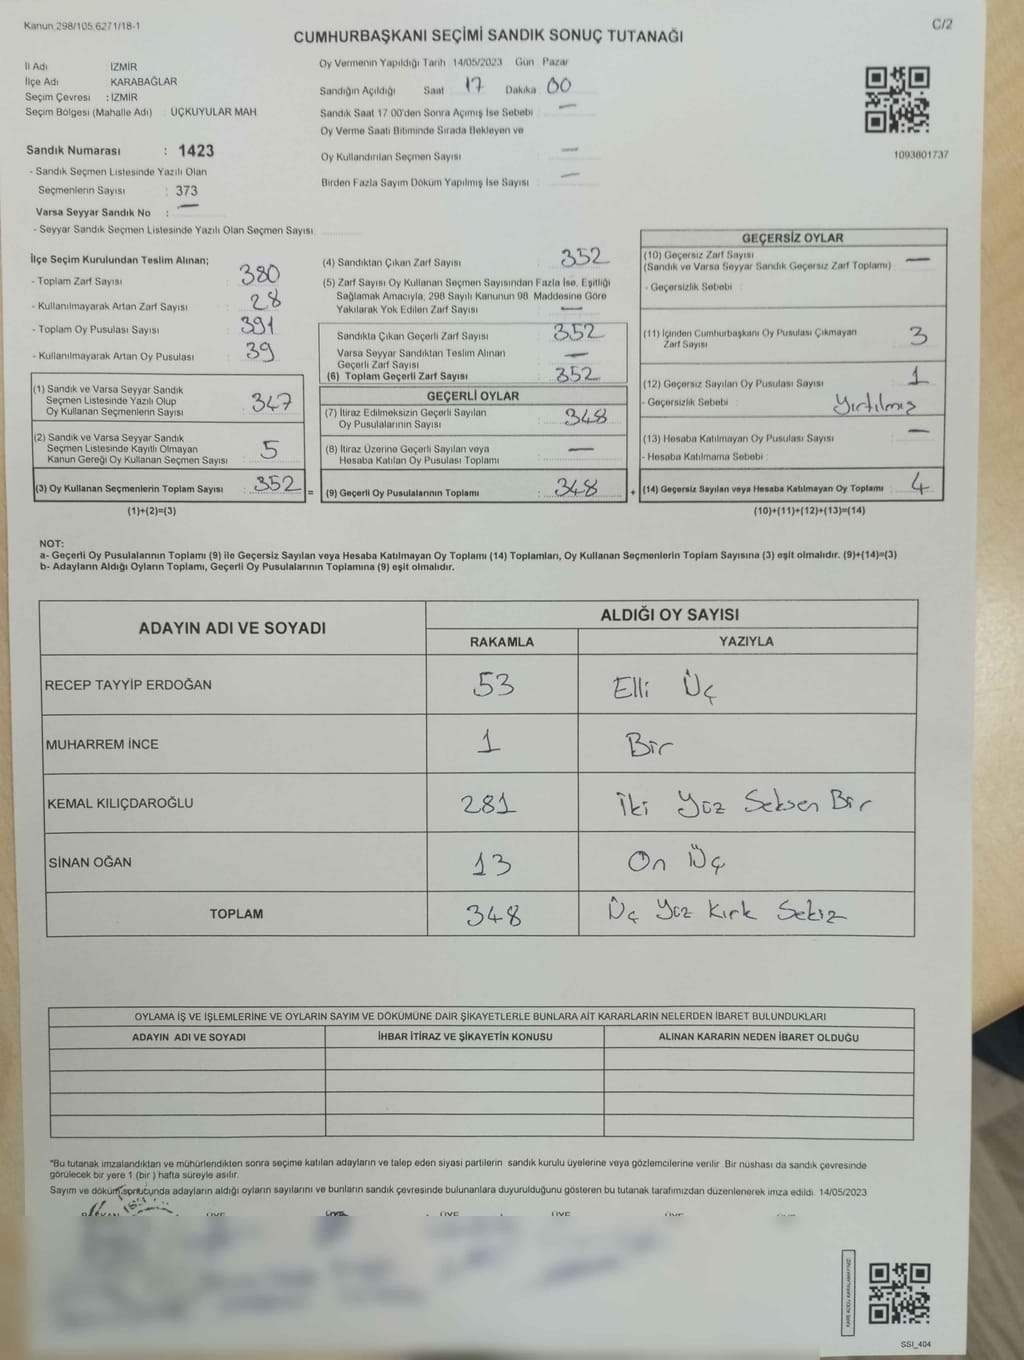 Kanun 298/105,6271/18-1
C/2
CUMHURBAŞKANI SEÇİMİ SANDIK SONUÇ TUTANAĞI
İl Adı : İZMİR
İlçe Adı : KARABAĞLAR
Seçim Çevresi : İZMİR
Seçim Bölgesi (Mahalle Adı) : ÜÇKUYULAR MAH
Sandık Numarası : 1423
- Sandık Seçmen Listesinde Yazılı Olan
Seçmenlerin Sayısı : 373
Varsa Seyyar Sandık No : —
- Seyyar Sandık Seçmen Listesinde Yazılı Olan Seçmen Sayısı
Oy Vermenin Yapıldığı Tarih 14/05/2023 Gün Pazar
Sandığın Açıldığı Saat 17 Dakika 00
Sandık Saat 17.00'den Sonra Açımış İse Sebebi : —
Oy Verme Saati Bitiminde Sırada Bekleyen ve
Oy Kullandırılan Seçmen Sayısı : —
Birden Fazla Sayım Döküm Yapılmış İse Sayısı : —
1093801737
İlçe Seçim Kurulundan Teslim Alınan;
- Toplam Zarf Sayısı : 380
- Kullanılmayarak Artan Zarf Sayısı : 28
- Toplam Oy Pusulası Sayısı : 391
- Kullanılmayarak Artan Oy Pusulası : 39
(1) Sandık ve Varsa Seyyar Sandık
Seçmen Listesinde Yazılı Olup
Oy Kullanan Seçmenlerin Sayısı : 347
(2) Sandık ve Varsa Seyyar Sandık
Seçmen Listesinde Kayıtlı Olmayan
Kanun Gereği Oy Kullanan Seçmen Sayısı : 5
(3) Oy Kullanan Seçmenlerin Toplam Sayısı : 352 =
(1)+(2)=(3)
(4) Sandıktan Çıkan Zarf Sayısı : 352
(5) Zarf Sayısı Oy Kullanan Seçmen Sayısından Fazla İse, Eşitliği
Sağlamak Amacıyla, 298 Sayılı Kanunun 98. Maddesine Göre
Yakılarak Yok Edilen Zarf Sayısı : —
Sandıkta Çıkan Geçerli Zarf Sayısı : 352
Varsa Seyyar Sandıktan Teslim Alınan
Geçerli Zarf Sayısı : —
(6) Toplam Geçerli Zarf Sayısı : 352
GEÇERLİ OYLAR
(7) İtiraz Edilmeksizin Geçerli Sayılan
Oy Pusulalarının Sayısı : 348
(8) İtiraz Üzerine Geçerli Sayılan veya
Hesaba Katılan Oy Pusulası Toplamı : —
(9) Geçerli Oy Pusulalarının Toplamı : 348 +
GEÇERSİZ OYLAR
(10) Geçersiz Zarf Sayısı
(Sandık ve Varsa Seyyar Sandık Geçersiz Zarf Toplamı) : —
- Geçersizlik Sebebi :
(11) İçinden Cumhurbaşkanı Oy Pusulası Çıkmayan
Zarf Sayısı 3
(12) Geçersiz Sayılan Oy Pusulası Sayısı : 1
- Geçersizlik Sebebi : Yırtılmış
(13) Hesaba Katılmayan Oy Pusulası Sayısı : —
- Hesaba Katılmama Sebebi :
(14) Geçersiz Sayılan veya Hesaba Katılmayan Oy Toplamı : 4
(10)+(11)+(12)+(13)=(14)
NOT:
a- Geçerli Oy Pusulalarının Toplamı (9) ile Geçersiz Sayılan veya Hesaba Katılmayan Oy Toplamı (14) Toplamları, Oy Kullanan Seçmenlerin Toplam Sayısına (3) eşit olmalıdır. (9)+(14)=(3)
b- Adayların Aldığı Oyların Toplamı, Geçerli Oy Pusulalarının Toplamına (9) eşit olmalıdır.
ADAYIN ADI VE SOYADI ALDIĞI OY SAYISI
RAKAMLA YAZIYLA
RECEP TAYYİP ERDOĞAN 53 Elli Üç
MUHARREM İNCE 1 Bir
KEMAL KILIÇDAROĞLU 281 İki Yüz Seksen Bir
SİNAN OĞAN 13 On Üç
TOPLAM 348 Üç Yüz Kırk Sekiz
OYLAMA İŞ VE İŞLEMLERİNE VE OYLARIN SAYIM VE DÖKÜMÜNE DAİR ŞİKAYETLERLE BUNLARA AİT KARARLARIN NELERDEN İBARET BULUNDUKLARI
ADAYIN ADI VE SOYADI İHBAR İTİRAZ VE ŞİKAYETİN KONUSU ALINAN KARARIN NEDEN İBARET OLDUĞU
*Bu tutanak imzalandıktan ve mühürlendikten sonra seçime katılan adayların ve talep eden siyasi partilerin sandık kurulu üyelerine veya gözlemcilerine verilir. Bir nüshası da sandık çevresinde
görülecek bir yere 1 (bir) hafta süreyle asılır.
Sayım ve döküm sonucunda adayların aldığı oyların sayılarını ve bunların sandık çevresinde bulunanlara duyurulduğunu gösteren bu tutanak tarafımızdan düzenlenerek imza edildi. 14/05/2023
SSI_404